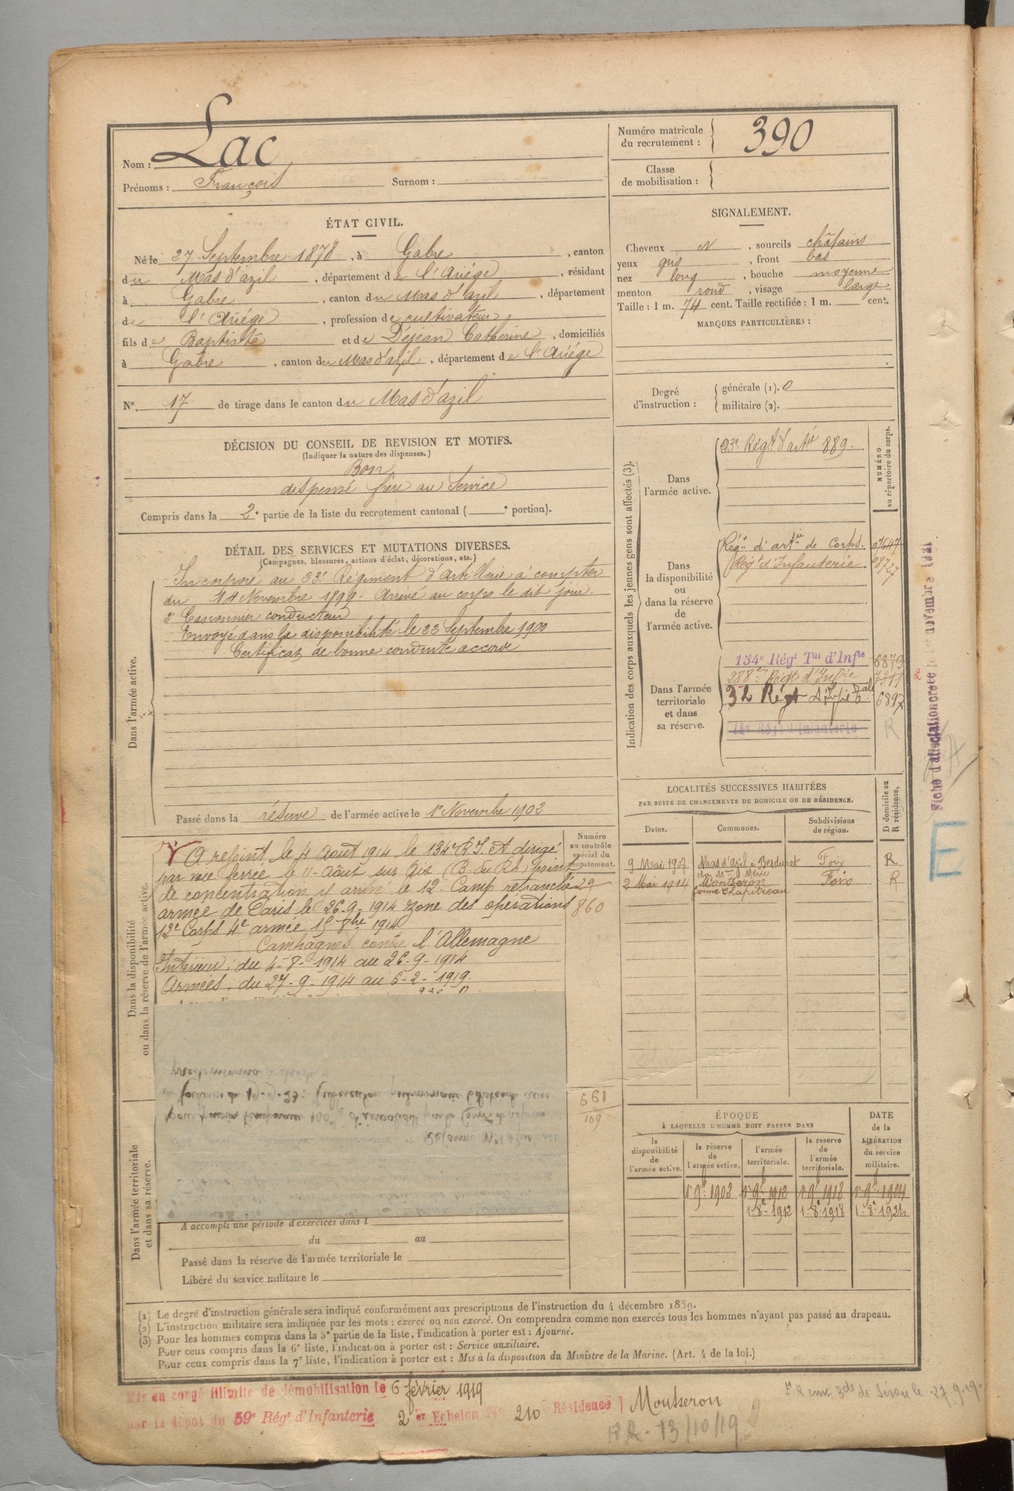 Nom : Lac
Prénoms : François Surnom :
Numéro matricule du recrutement : 390
Classe de mobilisation :
ÉTAT CIVIL.
Né le 27 Septembre 1878, à Gabre, canton
du Mas d'azil, département de l'Ariége, résidant
à Gabre, canton du Mas d'azil, département
de l'Ariége, profession de cultivateur,
fils de Baptiste et de Déjean Catherine, domiciliés
à Gabre, canton du Mas d'azil, département de l'Ariége
N° 17 de tirage dans le canton du Mas d'azil
SIGNALEMENT.
Cheveux N, sourcils châtains
yeux gris, front bas
nez long, bouche moyenne
menton rond, visage large
Taille : 1 m. 74 cent. Taille rectifiée : 1 m. cent.
MARQUES PARTICULIÈRES :
Degré d'instruction : générale (1). 0
militaire (2).
DÉCISION DU CONSEIL DE REVISION ET MOTIFS.
(Indiquer la nature des dispenses.)
Bon
dispensé frère au Service
Compris dans la 2e partie de la liste du recrutement cantonal ( e portion).
DÉTAIL DES SERVICES ET MUTATIONS DIVERSES.
(Campagnes, blessures, actions d'éclat, décorations, etc.)
Dans l'armée active.
Incorporé au 23e Régiment d'Artillerie à compter
du 14 Novembre 1899. Arrivé au corps le dit jour.
2e Canonnier conducteur
Envoyé dans la disponibilité le 22 Septembre 1900
Certificat de bonne conduite accordé
Passé dans la réserve de l'armée active le 1er Novembre 1902
Indication des corps auxquels les jeunes gens sont affectés (3).
NUMÉRO au répertoire du corps.
Dans l'armée active.
23e Régt d'artie 889.
Dans la disponibilité ou dans la réserve de l'armée active.
Régn d'artie de Corps.
Régt d'Infanterie
Dans l'armée territoriale et dans sa réserve.
134e Régt Tal d'Infie 6879
288e Régt d'Infie
32 Régt 6897
R
Fiche d'affectation créée le novembre 1921
E
LOCALITÉS SUCCESSIVES HABITÉES
PAR SUITE DE CHANGEMENTS DE DOMICILE OU DE RÉSIDENCE.
Dates. Communes. Subdivisions de région. D domicile ou R résidence.
9 Mai 1907 Mas d'azil Foix R
2 Mai 1914 Montseron Foix R
Dans la disponibilité ou dans la réserve de l'armée active.
Numéro au contrôle spécial du recrutement.
A rejoint le 4 Août 1914 le 134e R.I. et dirigé
par voie ferrée le 11 Août sur Aix (B. du Rh) point
de concentration, y arrivé le 12. Camp retranché
armée de Paris le 26.9.1914 zone des opérations
12e Corps 4e armée 15 8bre 1914
Campagnes contre l'Allemagne
Intérieur : du 4-8-1914 au 26-9-1914
Armées : du 27-9-1914 au 5-2-1919.
29
860
661
109
Dans l'armée territoriale et dans sa réserve.
A accompli une période d'exercices dans l
du au
Passé dans la réserve de l'armée territoriale le
Libéré du service militaire le
ÉPOQUE
À LAQUELLE L'HOMME DOIT PASSER DANS
DATE de la LIBÉRATION du service militaire.
la disponibilité de l'armée active. la réserve de l'armée active. l'armée territoriale. la réserve de l'armée territoriale.
1er 9bre 1902 1er 9bre 1912 1er 9bre 1918 1er 9bre 1924
1-8e 1912 1-8e 1918 1-8e 1924
(1) Le degré d'instruction générale sera indiqué conformément aux prescriptions de l'instruction du 4 décembre 1889.
(2) L'instruction militaire sera indiquée par les mots : exercé ou non exercé. On comprendra comme non exercés tous les hommes n'ayant pas passé au drapeau.
(3) Pour les hommes compris dans la 5e partie de la liste, l'indication à porter est : Ajourné.
Pour ceux compris dans la 6e liste, l'indication à porter est : Service auxiliaire.
Pour ceux compris dans la 7e liste, l'indication à porter est : Mis à la disposition du Ministre de la Marine. (Art. 4 de la loi.)
Mis en congé illimité de démobilisation le 6 février 1919
par le dépot du 59e Régt d'Infanterie 2e Echelon N° 210 Résidence Montseron
RR - 13/10/19